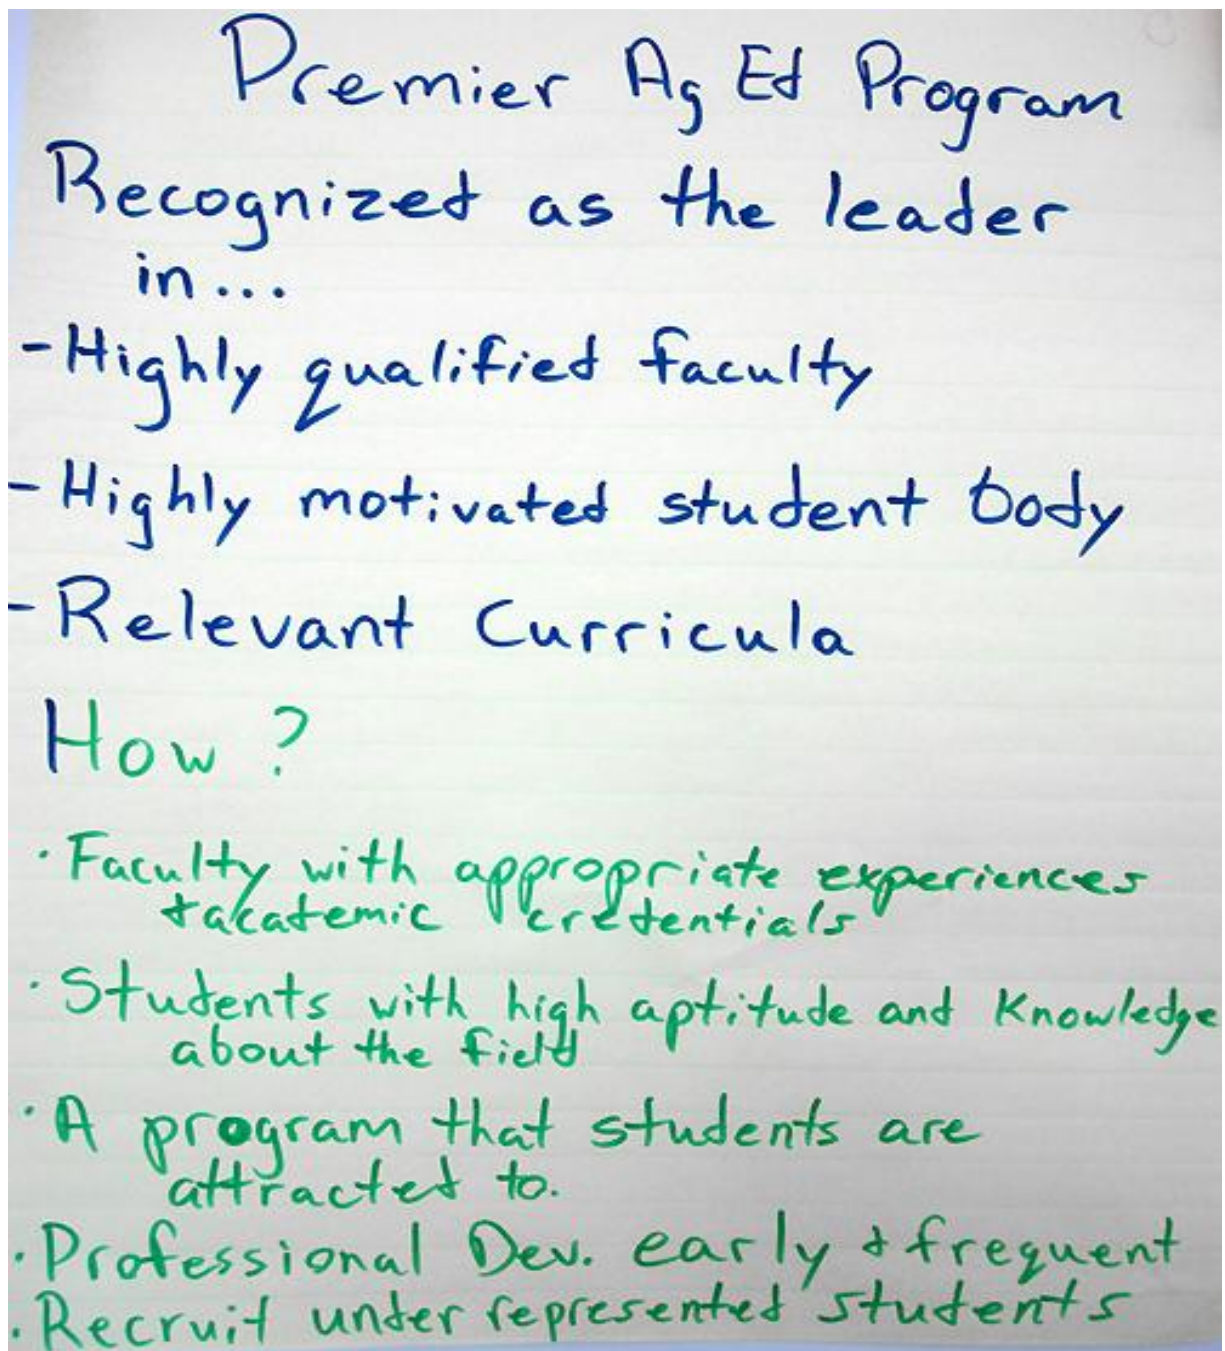 Premier Ag Ed Program
Recognized as the leader
in...
- Highly qualified faculty
- Highly motivated student body
- Relevant Curricula
How ?
· Faculty with appropriate experiences
+ academic credentials
· Students with high aptitude and Knowledge
about the field
· A program that students are
attracted to.
· Professional Dev. early + frequent
· Recruit under represented students